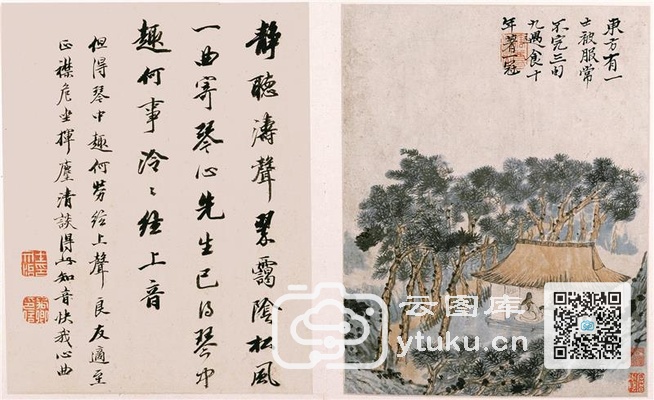 東方有一
士被服常
不完三旬
九遇食十
年著一冠
静聽濤聲翠靄陰松風
一曲寄琴心先生已得琴中
趣何事泠〻絃上音
但得琴中趣何劳絃上聲良友適至
正襟危坐揮麈清談得此知音快我心曲
云图库
ytuku.cn